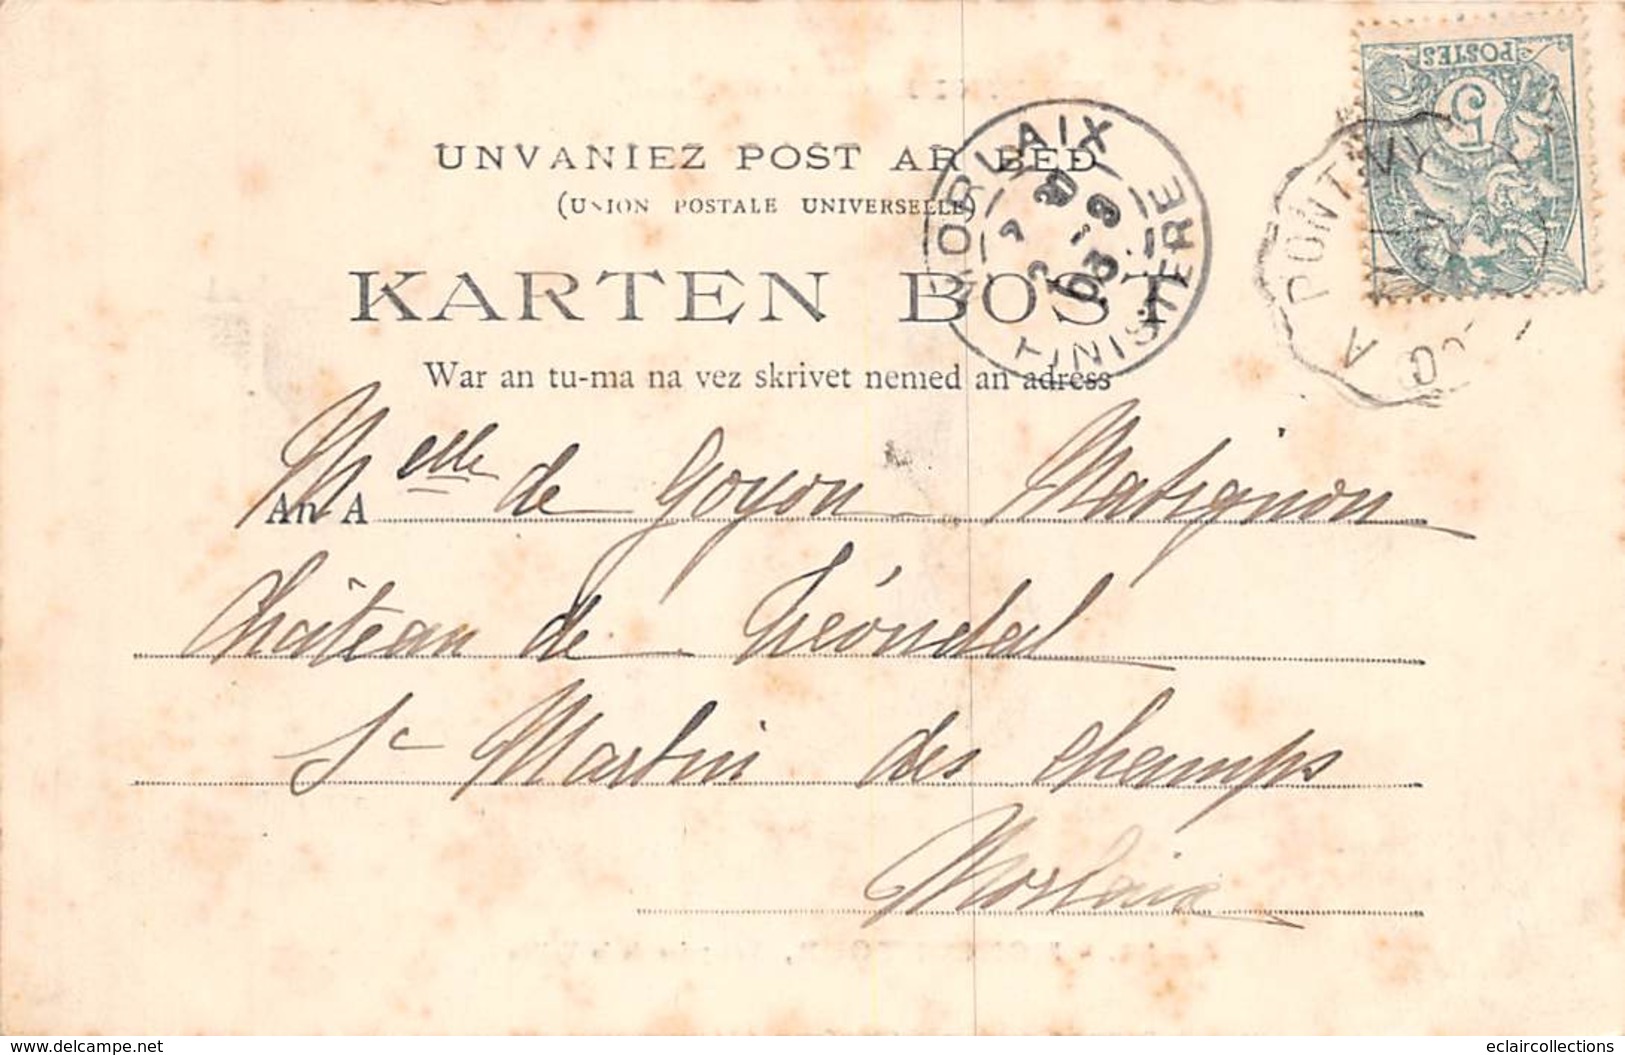 UNVANIEZ POST AR BED
(UNION POSTALE UNIVERSELLE)
KARTEN BOST
War an tu-ma na vez skrivet nemed an adress
POSTES
5
MORLAIX
FINISTERE
03
PONTIVY A
An A Melle de Goyon Matignon
Château de
St Martin des champs
Morlaix
www.delcampe.net
eclaircollections